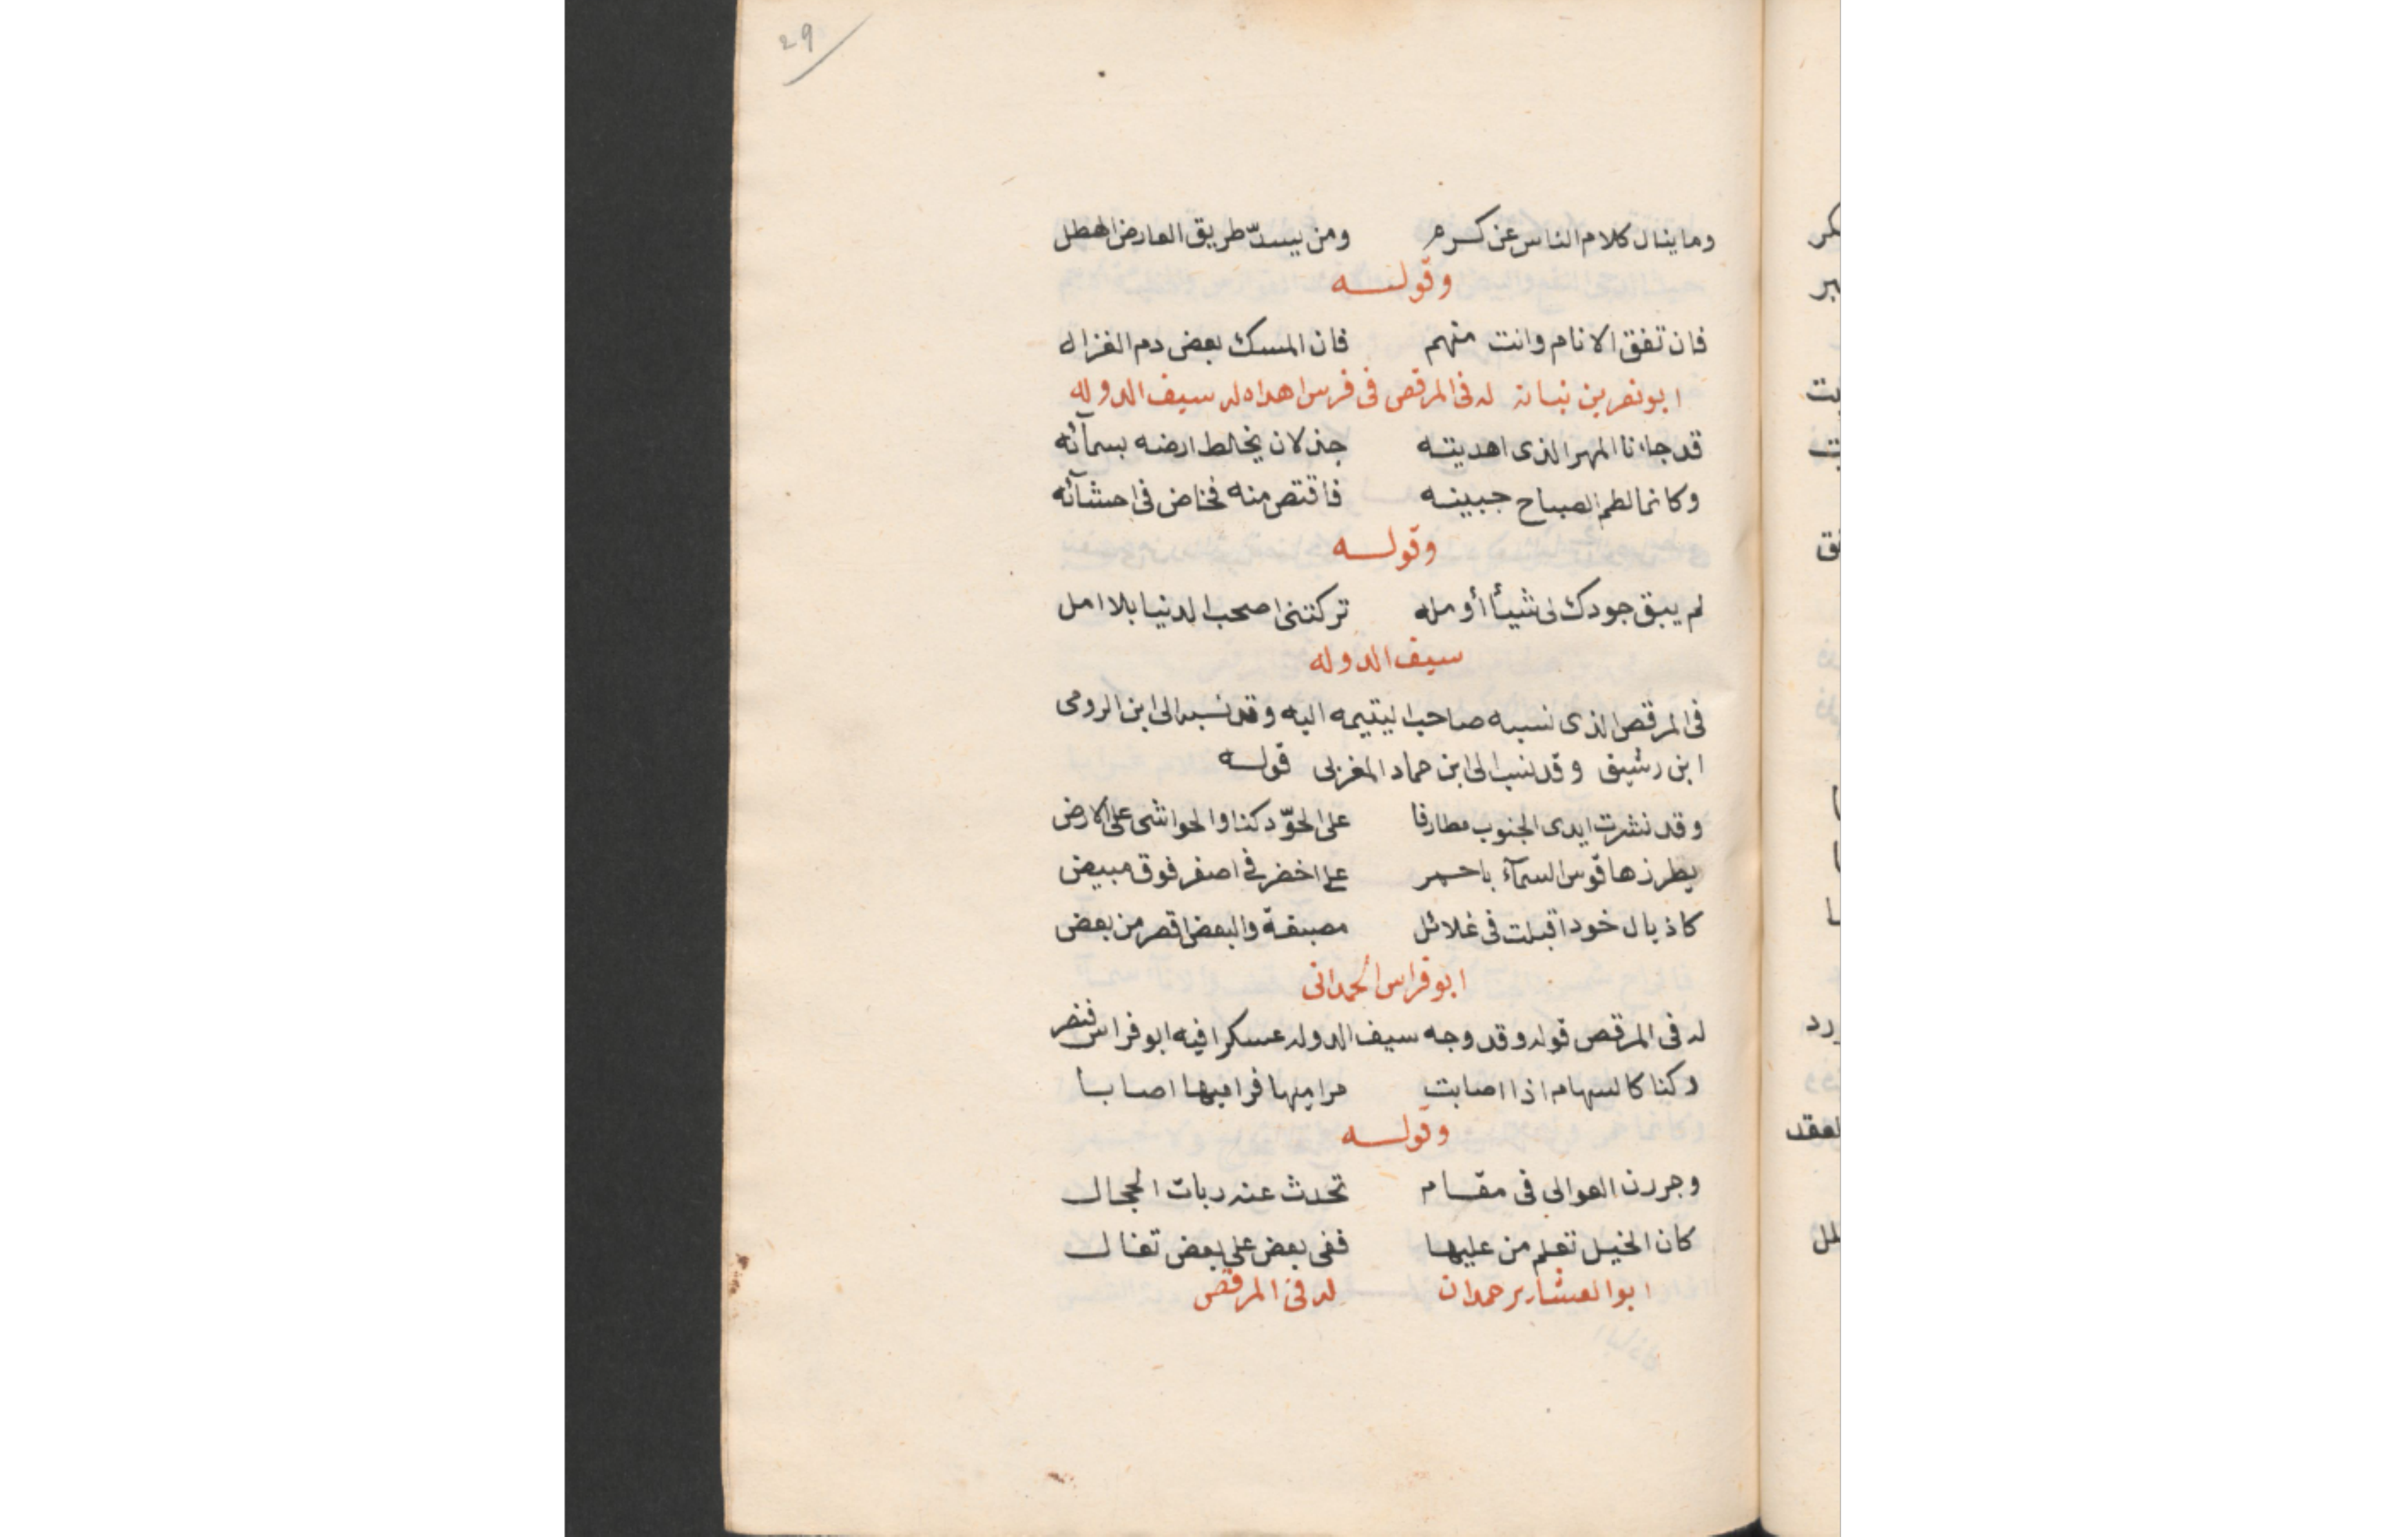 29
وما ينال كلام الناس عن كرم ومن يسدّ طريق العارض الهطل
وقوله
فان تفق الانام وانت منهم فان المسك بعض دم الغزال
ابو نصر بن نباته له فى المرقص فى فرس اهداه له سيف الدوله
قد جاءنا المهر الذى اهديته جذلان يخالط ارضه بسمآئه
وكانما لطم الصباح جبينه فاقتص منه فخاض فى احشآئه
وقوله
لم يبق جودك لى شيأ أومله تركتنى اصحب الدنيا بلا امل
سيف الدوله
فى المرقص الذى نسبه صاحب اليتيمه اليه وقد نسبه الى ابن الرومى
ابن رشيق وقد نسب الى ابن حماد المغربى قوله
وقد نشرت ايدى الجنوب مطارفا على الجوّ دكنا والحواشى على الارض
يطرزها قوس السمآء باحمر على اخضر فى اصفر فوق مبيض
كاذيال خود اقبلت فى غلائل مصبغة والبعض اقصر من بعض
ابو فراس الحمدانى
له فى المرقص قوله وقد وجه سيف الدوله عسكرا فيه ابو فراس فنصر
وكنا كالسهام اذا اصابت مراميها فراميها اصابا
وقوله
وجررن العوالى فى مقام تحدث عنه ربات الحجال
كان الخيل تعلم من عليها ففى بعض على بعض تغال
ابو العشاير حمدان له فى المرقص